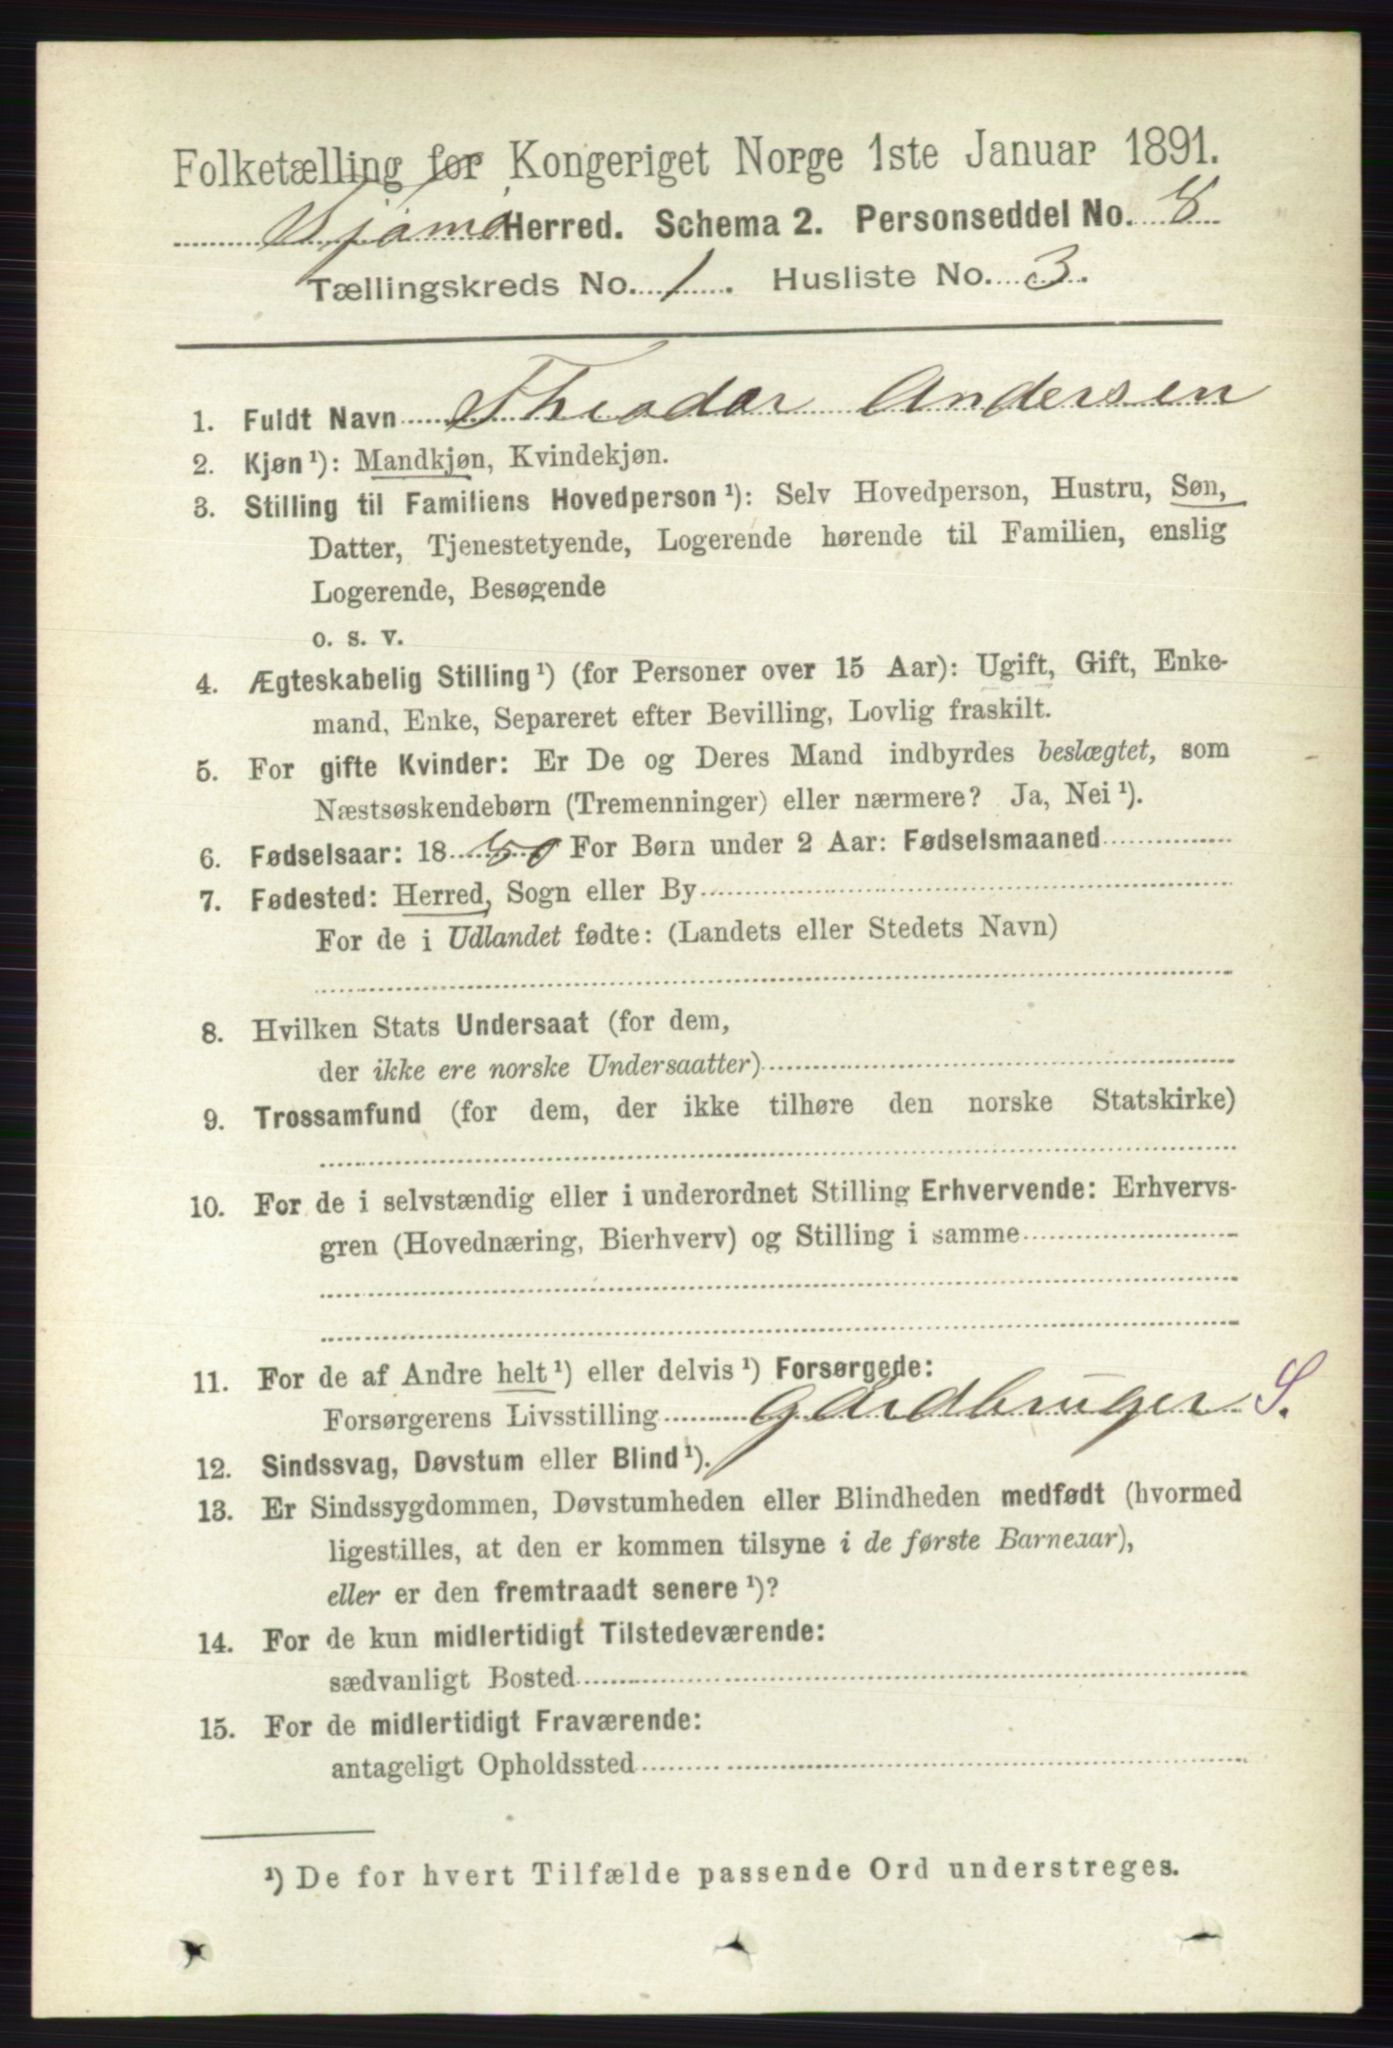 Folketælling for Kongeriget Norge 1ste Januar 1891.
Tjømø Herred. Schema 2. Personseddel No. 8
Tællingskreds No. 1. Husliste No. 3.
1. Fuldt Navn Theodor Andersen
2. Kjøn¹): Mandkjøn, Kvindekjøn.
3. Stilling til Familiens Hovedperson¹): Selv Hovedperson, Hustru, Søn,
Datter, Tjenestetyende, Logerende hørende til Familien, enslig
Logerende, Besøgende
o. s. v.
4. Ægteskabelig Stilling¹) (for Personer over 15 Aar): Ugift, Gift, Enke-
mand, Enke, Separeret efter Bevilling, Lovlig fraskilt.
5. For gifte Kvinder: Er De og Deres Mand indbyrdes beslægtet, som
Næstsøskendebørn (Tremenninger) eller nærmere? Ja, Nei¹).
6. Fødselsaar: 18 80 For Børn under 2 Aar: Fødselsmaaned
7. Fødested: Herred, Sogn eller By
For de i Udlandet fødte: (Landets eller Stedets Navn)
8. Hvilken Stats Undersaat (for dem,
der ikke ere norske Undersaatter)
9. Trossamfund (for dem, der ikke tilhøre den norske Statskirke)
10. For de i selvstændig eller i underordnet Stilling Erhvervende: Erhvervs-
gren (Hovednæring, Bierhverv) og Stilling i samme
11. For de af Andre helt¹) eller delvis¹) Forsørgede:
Forsørgerens Livsstilling Gårdbruger S.
12. Sindssvag, Døvstum eller Blind¹).
13. Er Sindssygdommen, Døvstumheden eller Blindheden medfødt (hvormed
ligestilles, at den er kommen tilsyne i de første Barneaar),
eller er den fremtraadt senere¹)?
14. For de kun midlertidigt Tilstedeværende:
sædvanligt Bosted
15. For de midlertidigt Fraværende:
antageligt Opholdssted
¹) De for hvert Tilfælde passende Ord understreges.